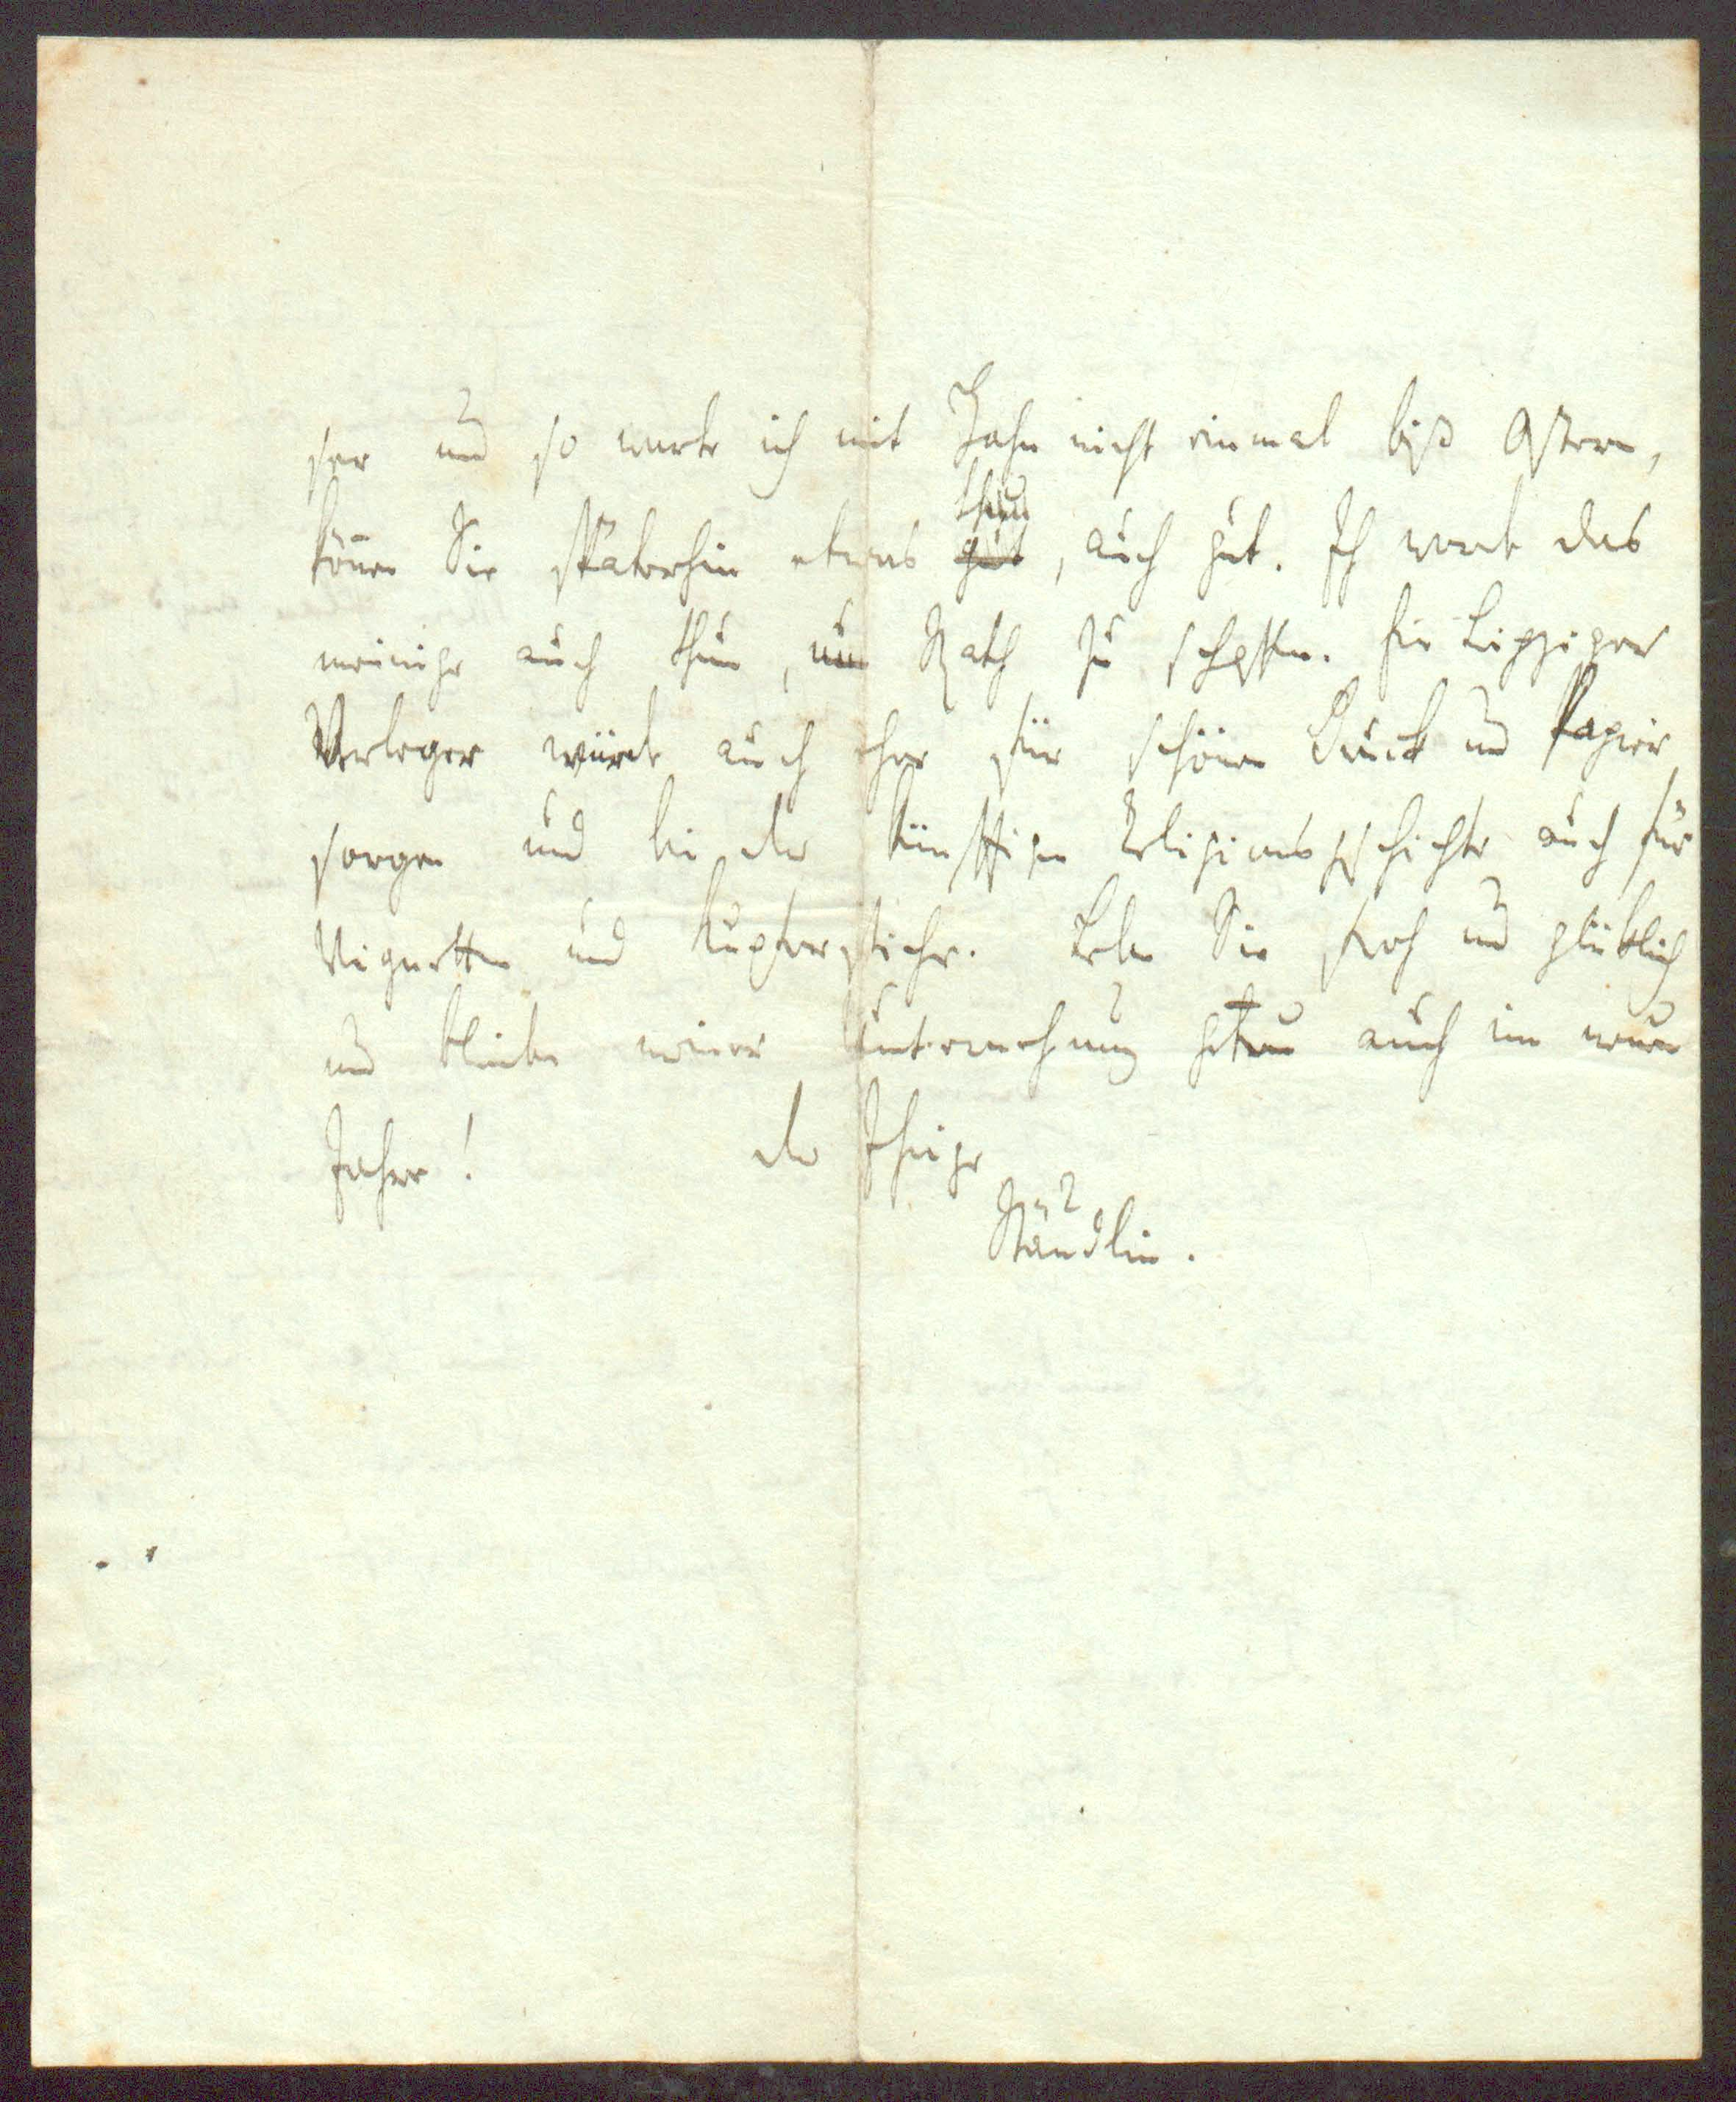 ser und so warte ich mit Zahn nicht einmal biß Ostern,
thun
können Sie späterhin etwas gut, auch gut. Ich werde das
meinige auch thun, um Rath zu schaffen. Ein Leipziger
Verleger würde auch eher für schönen Druck und Papier
sorgen und bei der künftigen Religionsgeschichte auch für
Vignetten und Kupferstiche. Leben Sie froh und glüklich
und bleiben meiner Unternehmung getreu auch im neuen
Jahre! der Ihrige
Stäudlin.